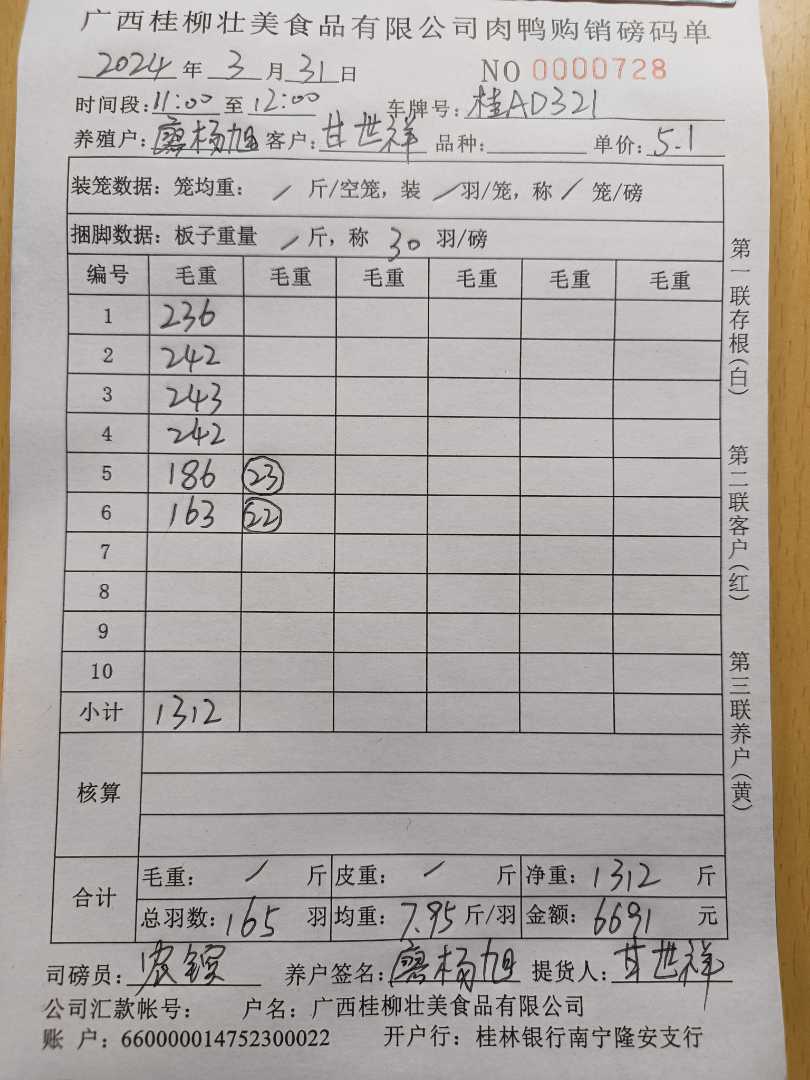 广西桂柳壮美食品有限公司肉鸭购销磅码单
2024 年 3 月 31 日 NO 0000728
时间段: 11:00 至 12:00 车牌号: 桂AD321
养殖户: 廖杨旭 客户: 甘世祥 品种: 单价: 5.1
装笼数据: 笼均重: / 斤/空笼, 装 / 羽/笼, 称 / 笼/磅
捆脚数据: 板子重量 / 斤, 称 30 羽/磅
编号 毛重 毛重 毛重 毛重 毛重 毛重
1 236
2 242
3 243
4 242
5 186 23
6 163 22
7
8
9
10
小计 1312
核算
合计 毛重: / 斤 皮重: / 斤 净重: 1312 斤
总羽数: 165 羽 均重: 7.95 斤/羽 金额: 6691 元
司磅员: 农 养户签名: 廖杨旭 提货人: 甘世祥
公司汇款帐号: 户名: 广西桂柳壮美食品有限公司
账 户: 660000014752300022 开户行: 桂林银行南宁隆安支行
第一联存根(白)
第二联客户(红)
第三联养户(黄)